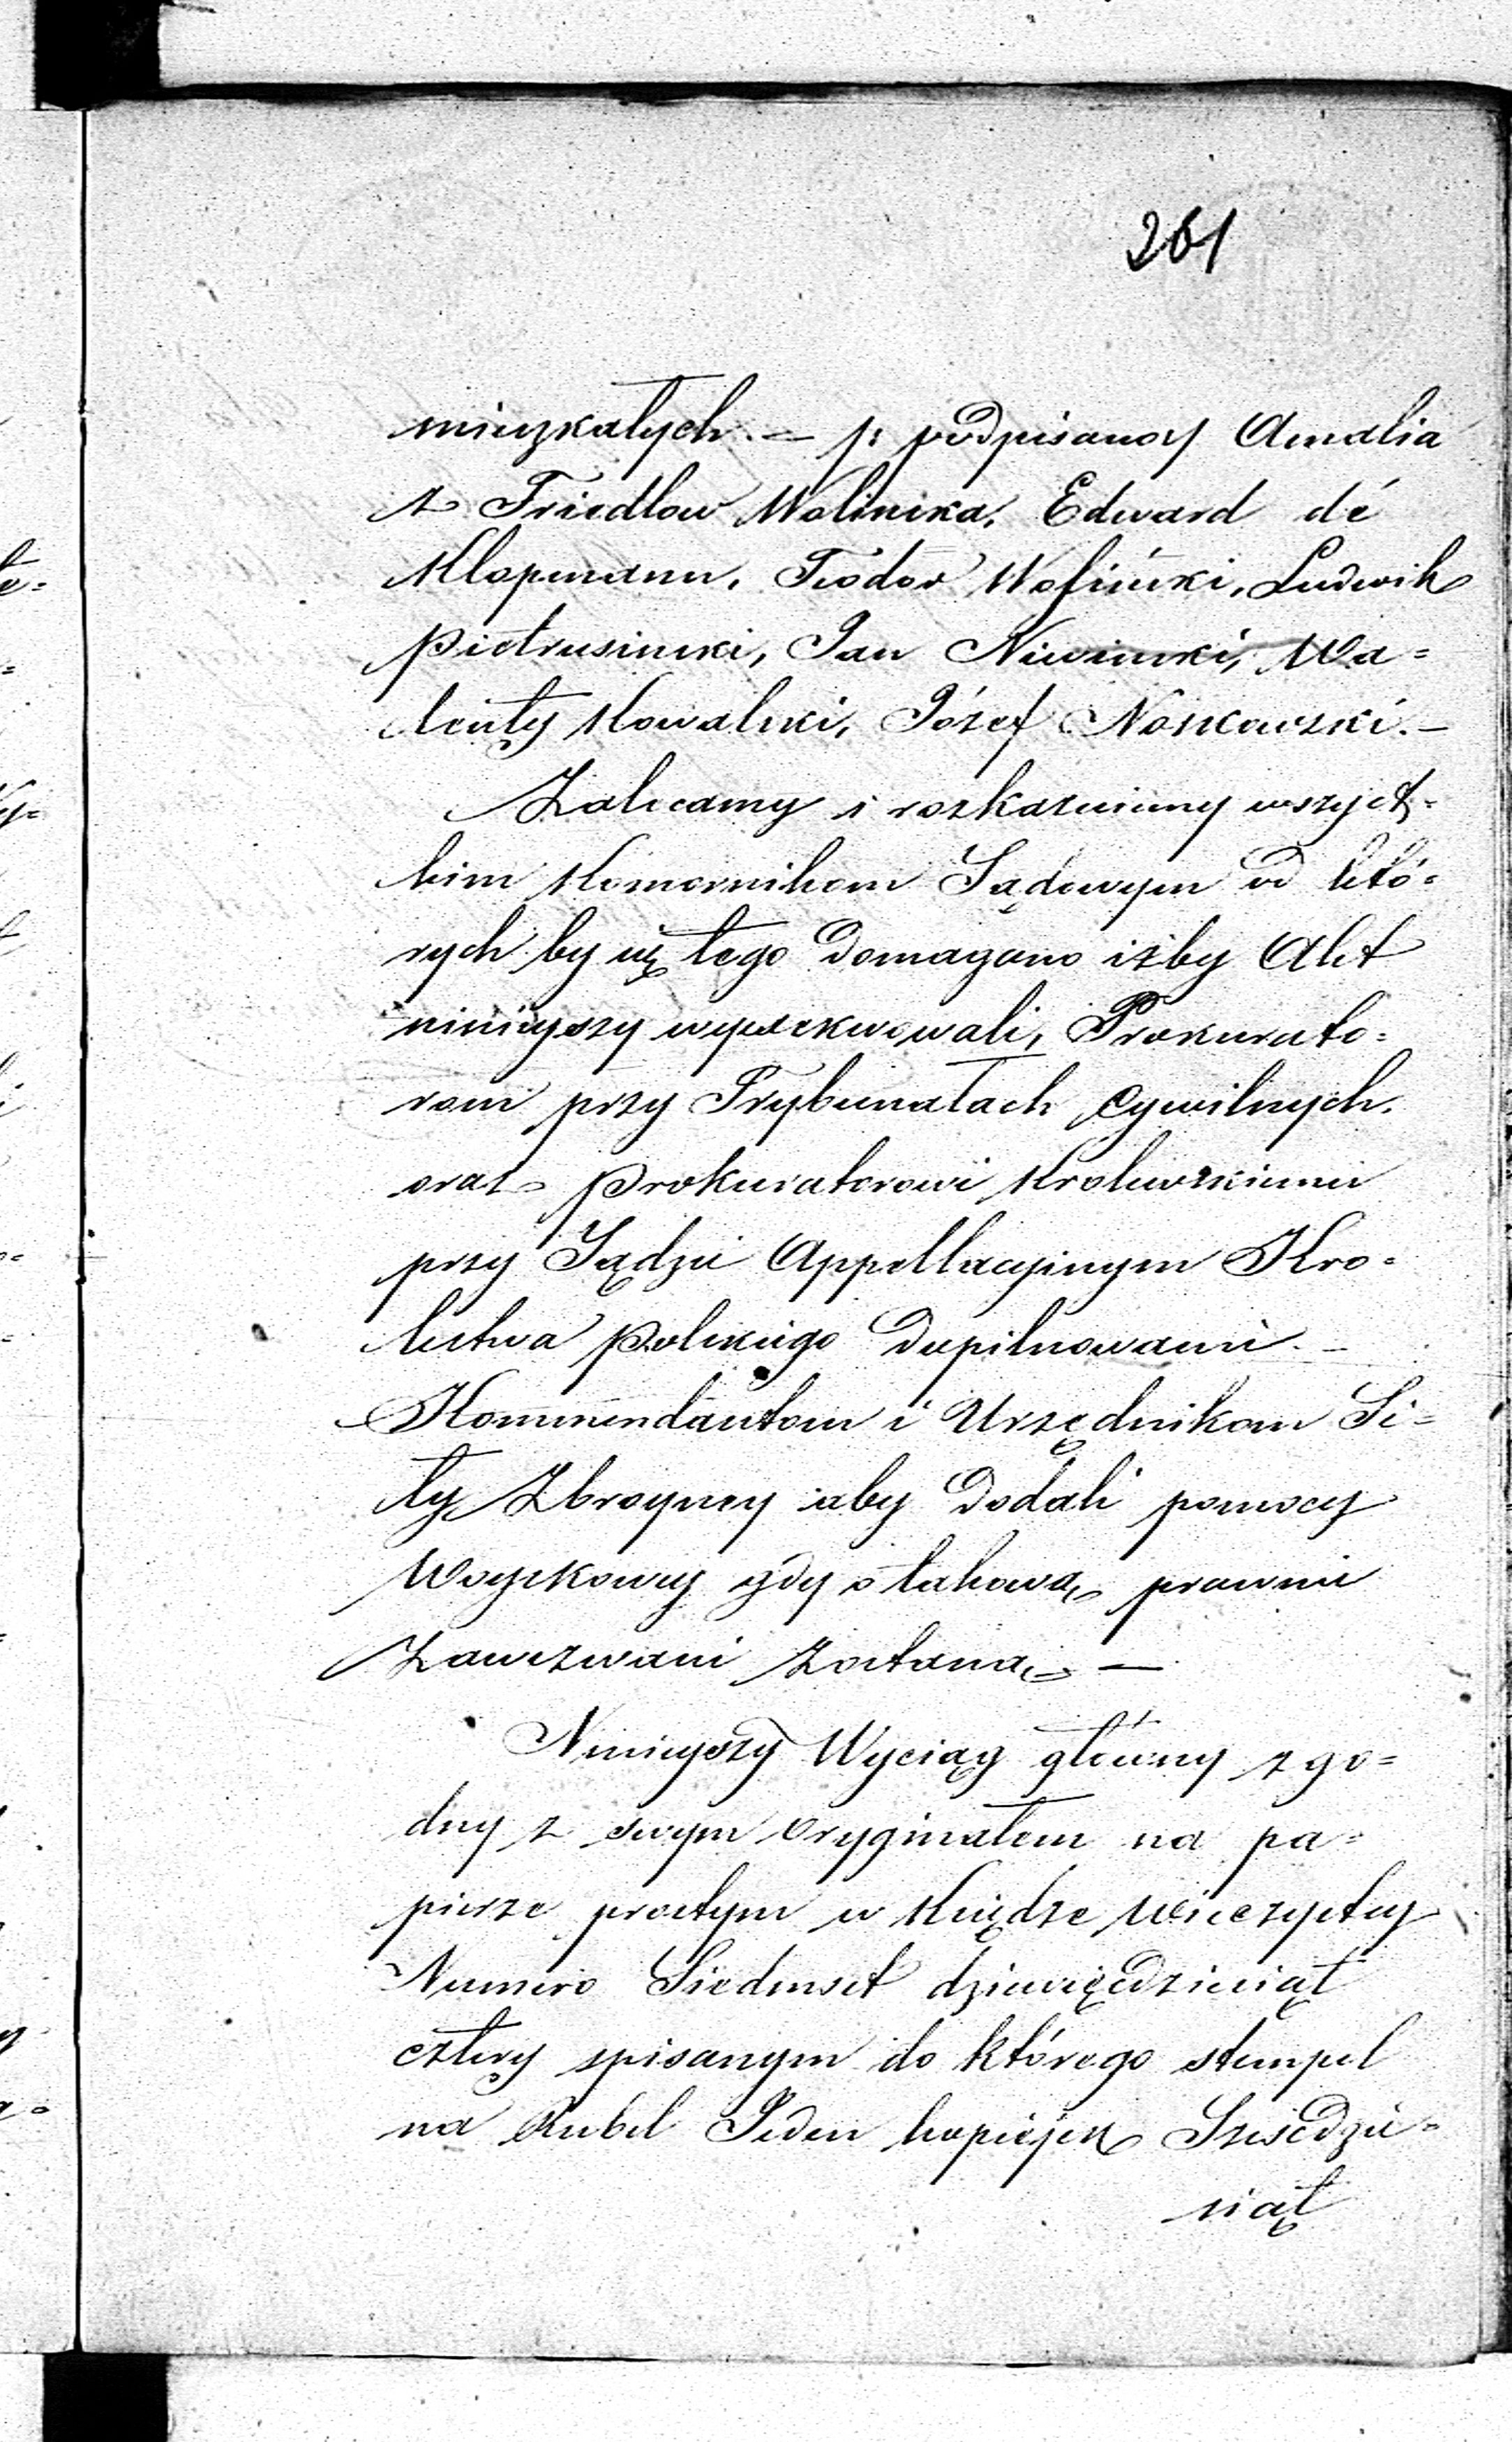 261
mieszkałych. — p: podpisanoy Amalia
z Friedlow Wolinska, Edward dé
Klopmann, Teodor Woliński, Ludwik
Pietrusinski, Jan Niewinski, Wa=
lenty Kowalski, Józef Noskowski. —
Zalecamy i rozkazuiemy wszyst=
kim Komornikom Sądowym od któ=
rych by się tego domagano iżby Akt
ninieyszy wyexekwowali, Prokurato=
rom przy Trybunałach Cywilnych.
oraz Prokuratorowi Krolewskiemu
przy Sądzie Appellacyjnym Kro=
lestwa Polskiego dopilnowanie. —
Kommendantom i Urzędnikom Si=
ły Zbroyney aby dodali pomocy
Woyskowey gdy o takową prawnie
zawezwani zostaną. —
Ninieyszy Wyciąg główny zgo=
dny z swym Oryginałem na pa=
pierze prostym w Księdze Wieczystey
Numero Siedmset dziewięćdziesiąt
cztery spisanym do którego stempel
na Rubel Jeden kopiejek Sześćdzie=
siąt